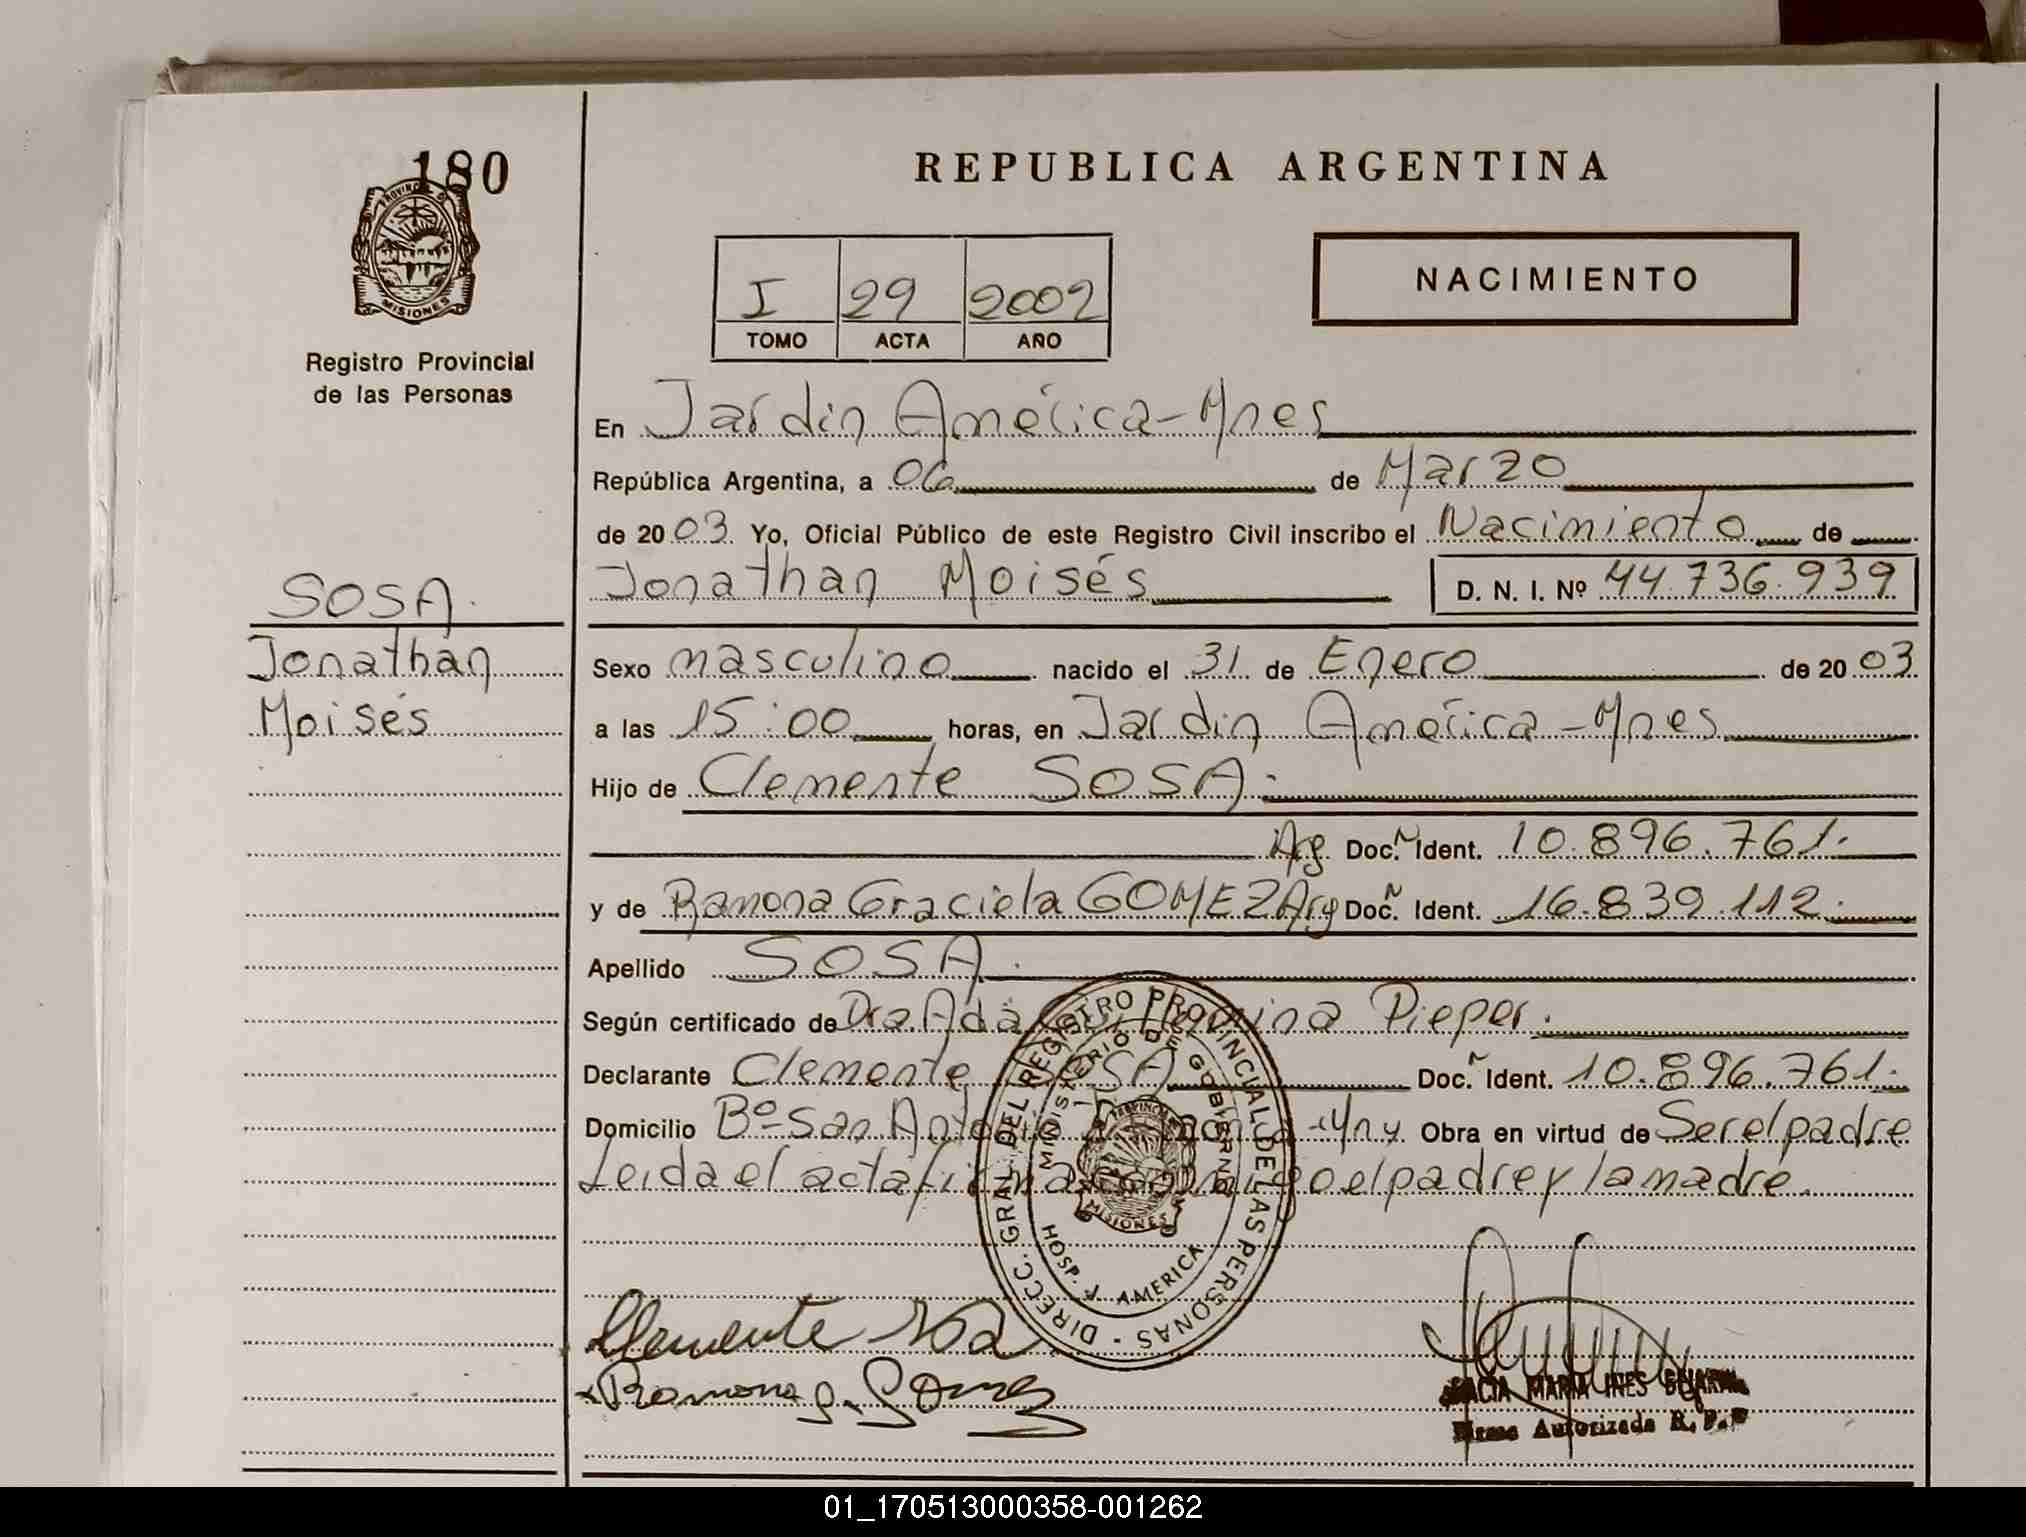 180
REPUBLICA ARGENTINA
PROVINCIA DE
MISIONES
Registro Provincial
de las Personas
I 29 2002
TOMO ACTA AÑO
NACIMIENTO
En Jardin América-Mnes
República Argentina, a 06 de Marzo
de 2003 Yo, Oficial Público de este Registro Civil inscribo el Nacimiento de
Jonathan Moisés D. N. I. Nº 44.736.939
SOSA.
Jonathan
Moisés
Sexo masculino nacido el 31 de Enero de 2003
a las 15:00 horas, en Jardin América-Mnes
Hijo de Clemente SOSA.
Arg Doc. Ident. 10.896.761.
y de Ramona Graciela GOMEZ Arg Doc. Ident. 16.839.112.
Apellido SOSA.
Según certificado de Dra Ada Pieper.
Declarante Clemente SOSA Doc. Ident. 10.896.761.
Domicilio Bº San Antonio Obra en virtud de Ser el padre
Leida el acta firma conmigo el padre y la madre.
DIRECC. GRAL. DEL REGISTRO PROVINCIAL DE LAS PERSONAS
MINISTERIO DE GOBIERNO
MISIONES
HOSP. J. AMERICA
Clemente Sosa
Ramona g. Gomez
MARIA INES
Firma Autorizada R. P. P
01_170513000358-001262